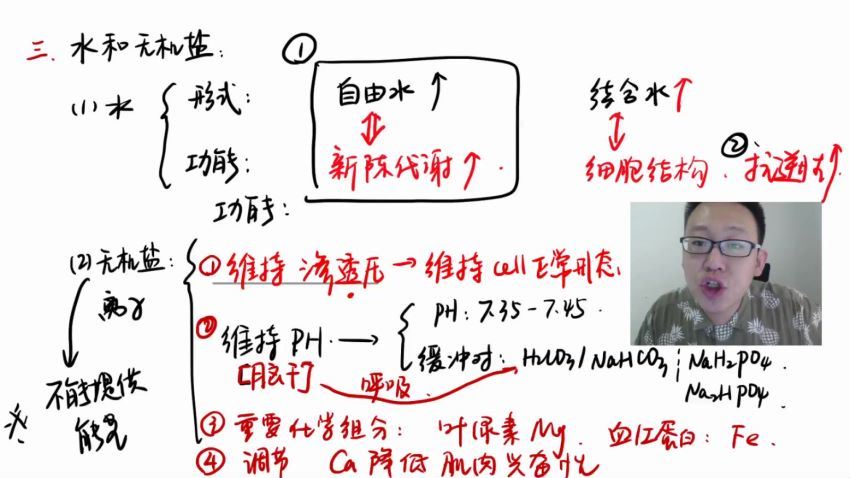 三、水和无机盐：
①
(1)水
形式：
自由水↑
结合水↑
功能：
新陈代谢↑
细胞结构、抗逆性↑
②
功能：
(2)无机盐：
①维持渗透压→维持cell正常形态
离子
②维持PH→
PH：7.35-7.45
缓冲对：H2CO3/NaHCO3；NaH2PO4
Na2HPO4
呼吸
不能提供
能量
③重要化学组分：叶绿素Mg、血红蛋白：Fe
④调节 Ca降低肌肉兴奋性